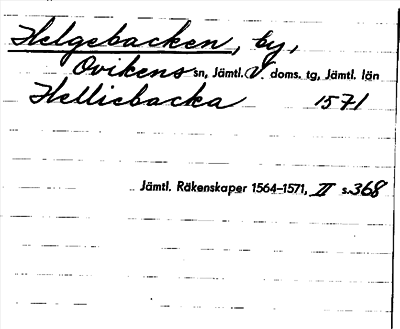 Helgebacken, by,
Ovikens sn, Jämtl. V. doms. tg, Jämtl. län
Helliebacka 1571
Jämtl. Räkenskaper 1564–1571, II s. 368